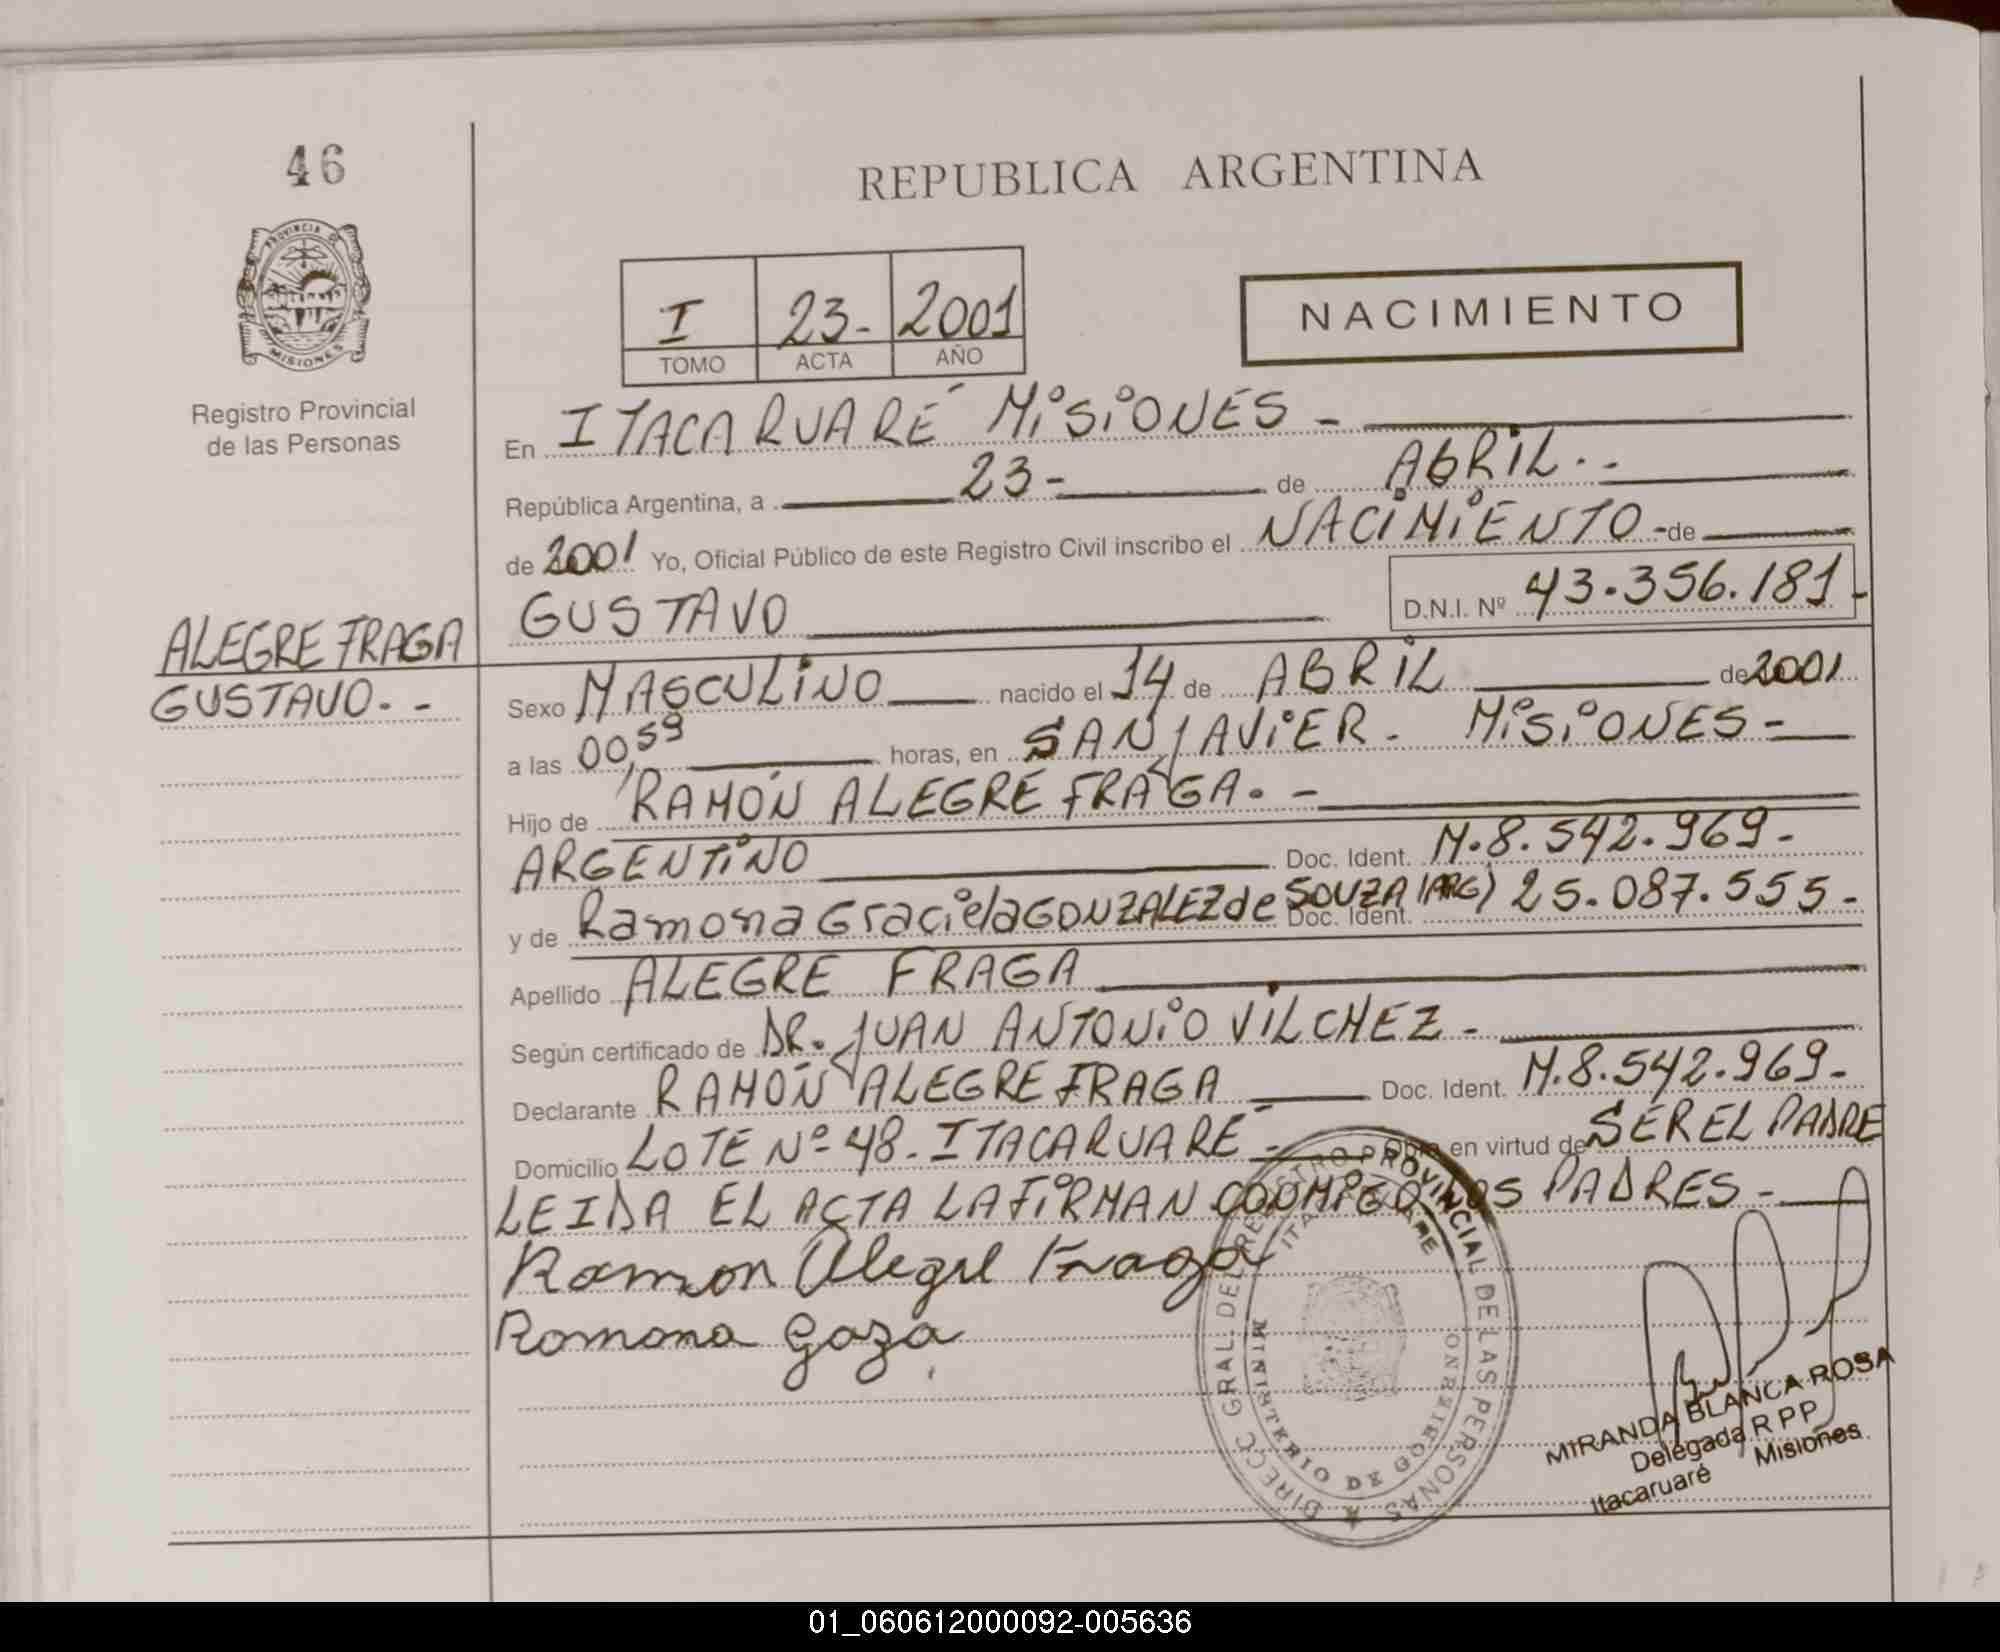 46
REPUBLICA ARGENTINA
PROVINCIA DE MISIONES
Registro Provincial
de las Personas
I 23- 2001
TOMO ACTA AÑO
NACIMIENTO
En ITACARUARÉ MISIONES -
República Argentina, a 23- de ABRIL.-
de 2001 Yo, Oficial Público de este Registro Civil inscribo el NACIMIENTO - de
GUSTAVO D.N.I. Nº 43.356.181-
ALEGRE FRAGA
GUSTAVO.-
Sexo MASCULINO nacido el 14 de ABRIL de 2001
a las 00,59 horas, en SAN JAVIER. MISIONES -
Hijo de RAMÓN ALEGRE FRAGA.-
ARGENTINO Doc. Ident. M.8.542.969-
y de Ramona Graciela GONZALEZ de SOUZA (ARG) Doc. Ident. 25.087.555-
Apellido ALEGRE FRAGA
Según certificado de DR. JUAN ANTONIO VILCHEZ -
Declarante RAMÓN ALEGRE FRAGA Doc. Ident. M.8.542.969-
Domicilio LOTE Nº 48. ITACARUARÉ - Obra en virtud de SER EL PADRE
LEIDA EL ACTA LA FIRMAN CONMIGO LOS PADRES -
Ramon Alegre Fraga
Ramona
DIRECC GRAL. DEL REGISTRO PROVINCIAL DE LAS PERSONAS
ITACARUARE
MINISTERIO DE GOBIERNO
MIRANDA BLANCA ROSA
Delegada R P P
Itacaruaré Misiones
01_060612000092-005636